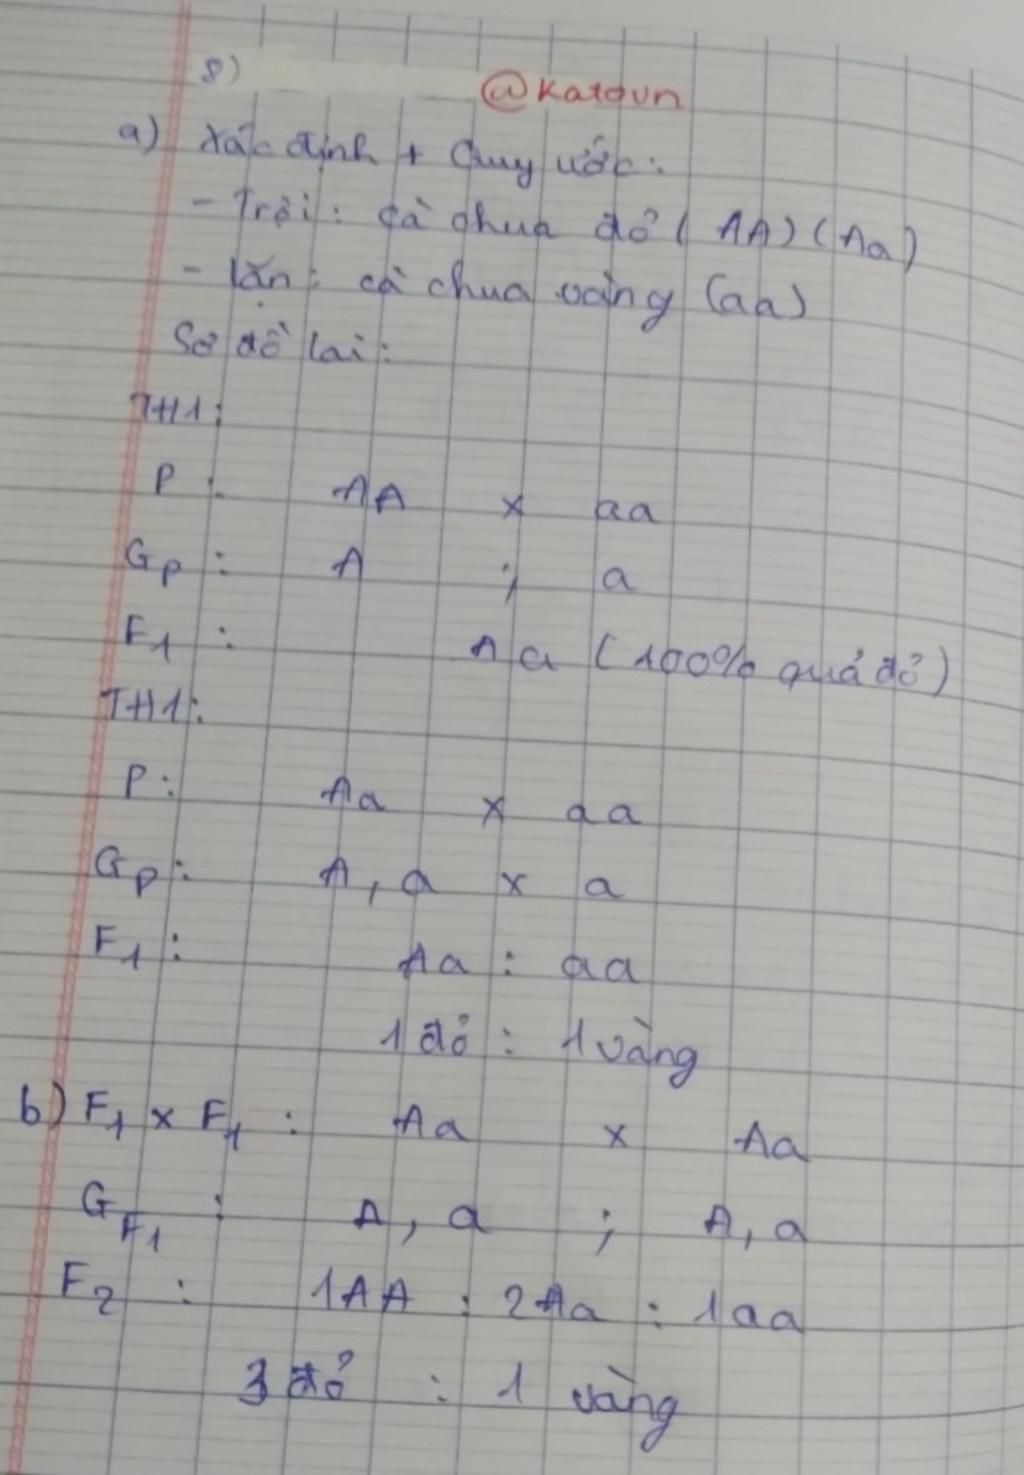 8)
@Katoun
a) Xác định + Quy ước:
- Trội: cà chua đỏ (AA) (Aa)
- lặn: cà chua vàng (aa)
Sơ đồ lai:
TH1:
P: AA x aa
GP: A ; a
F1: Aa (100% quả đỏ)
TH1:
P: Aa x aa
GP: A, a x a
F1: Aa : aa
1 đỏ : 1 vàng
b) F1 x F1: Aa x Aa
GF1: A, a ; A, a
F2: 1AA : 2Aa : 1aa
3 đỏ : 1 vàng